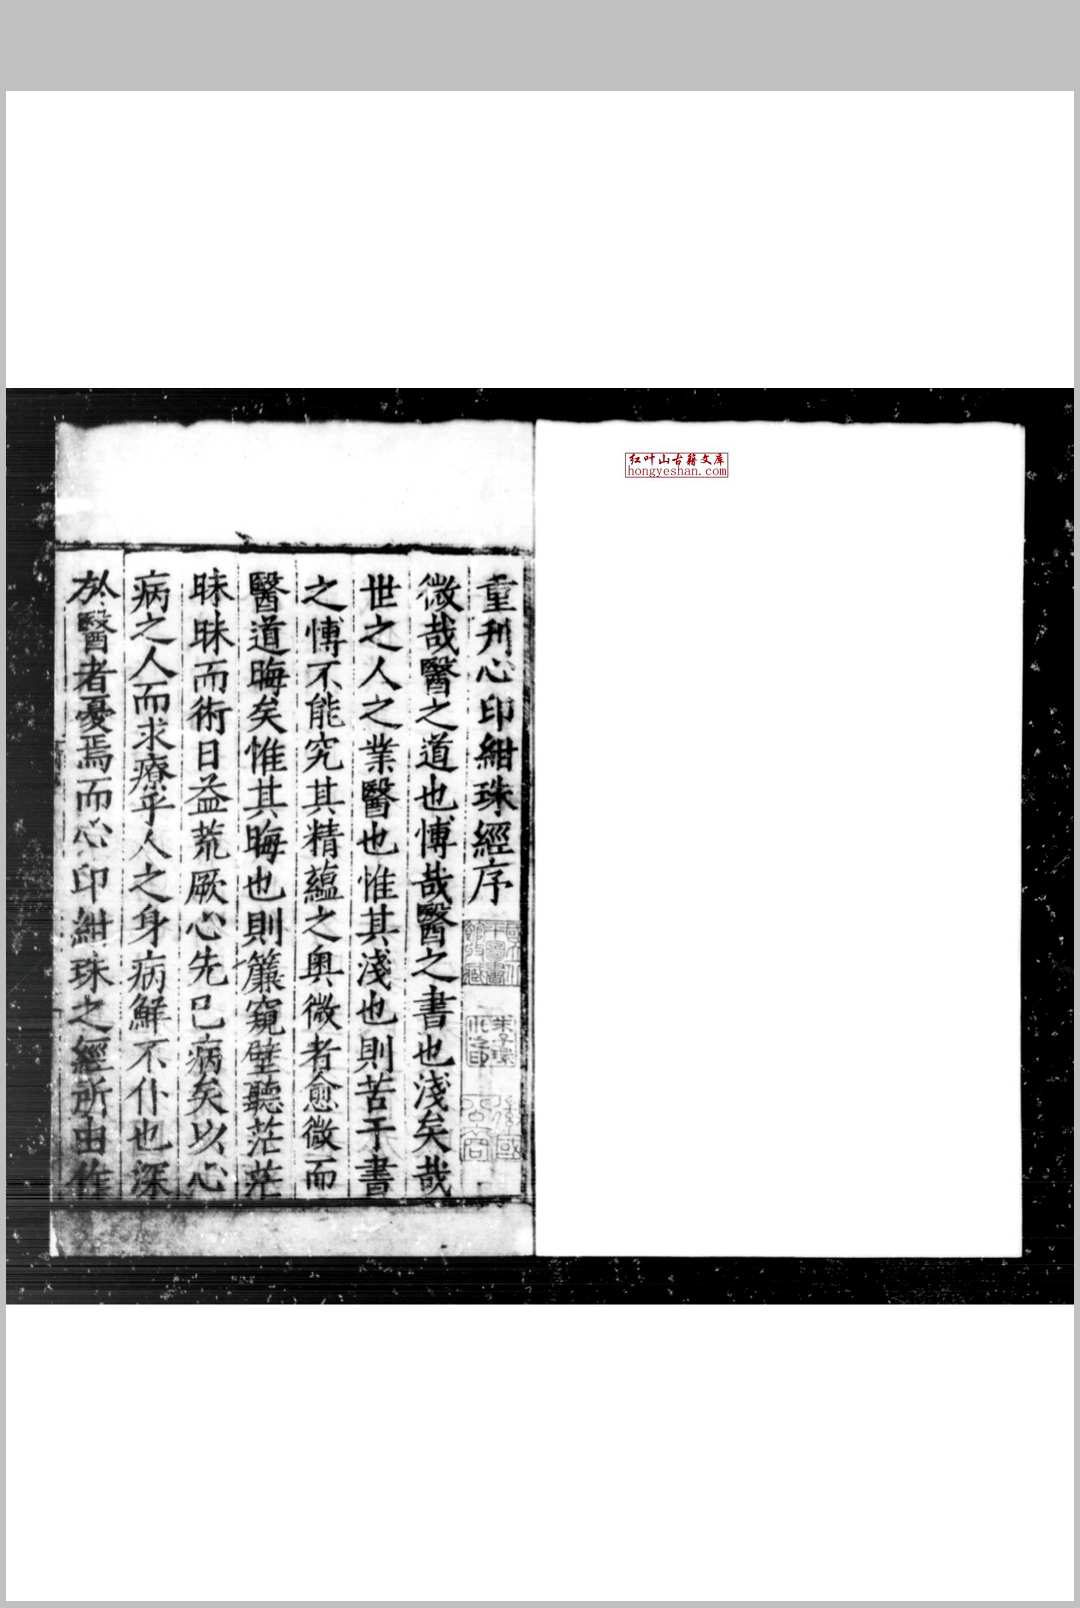 重刋心印紺珠經序
微哉醫之道也愽哉醫之書也淺矣哉
世之人之業醫也惟其淺也則苦于書
之愽不能究其精藴之奥微者愈微而
醫道晦矣惟其晦也則簾窺壁聽茫茫
昧昧而術日益荒厥心先已病矣以心
病之人而求療乎人之身病鮮不仆也深
於醫者憂焉而心印紺珠之經所由作
红叶山古籍文库
hongyeshan.com